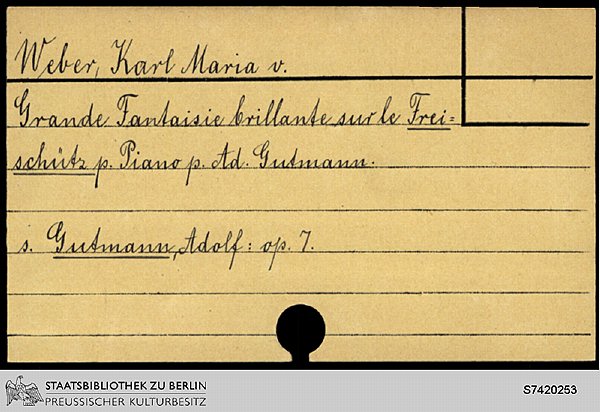 Weber, Karl Maria v.
Grande Fantaisie brillante sur le Frei=
schütz p. Piano p. Ad. Gutmann.
s. Gutmann, Adolf: op. 7.
STAATSBIBLIOTHEK ZU BERLIN
PREUSSISCHER KULTURBESITZ
S7420253